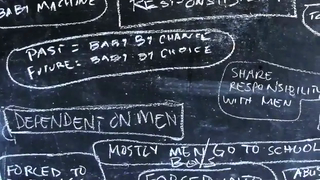 BABY MACHINE
PAST = BABY BY CHANCE
FUTURE = BABY BY CHOICE
SHARE
RESPONSIBILITY
WITH MEN
DEPENDENT ON MEN
MOSTLY MEN/BOYS GO TO SCHOOL
FORCED TO